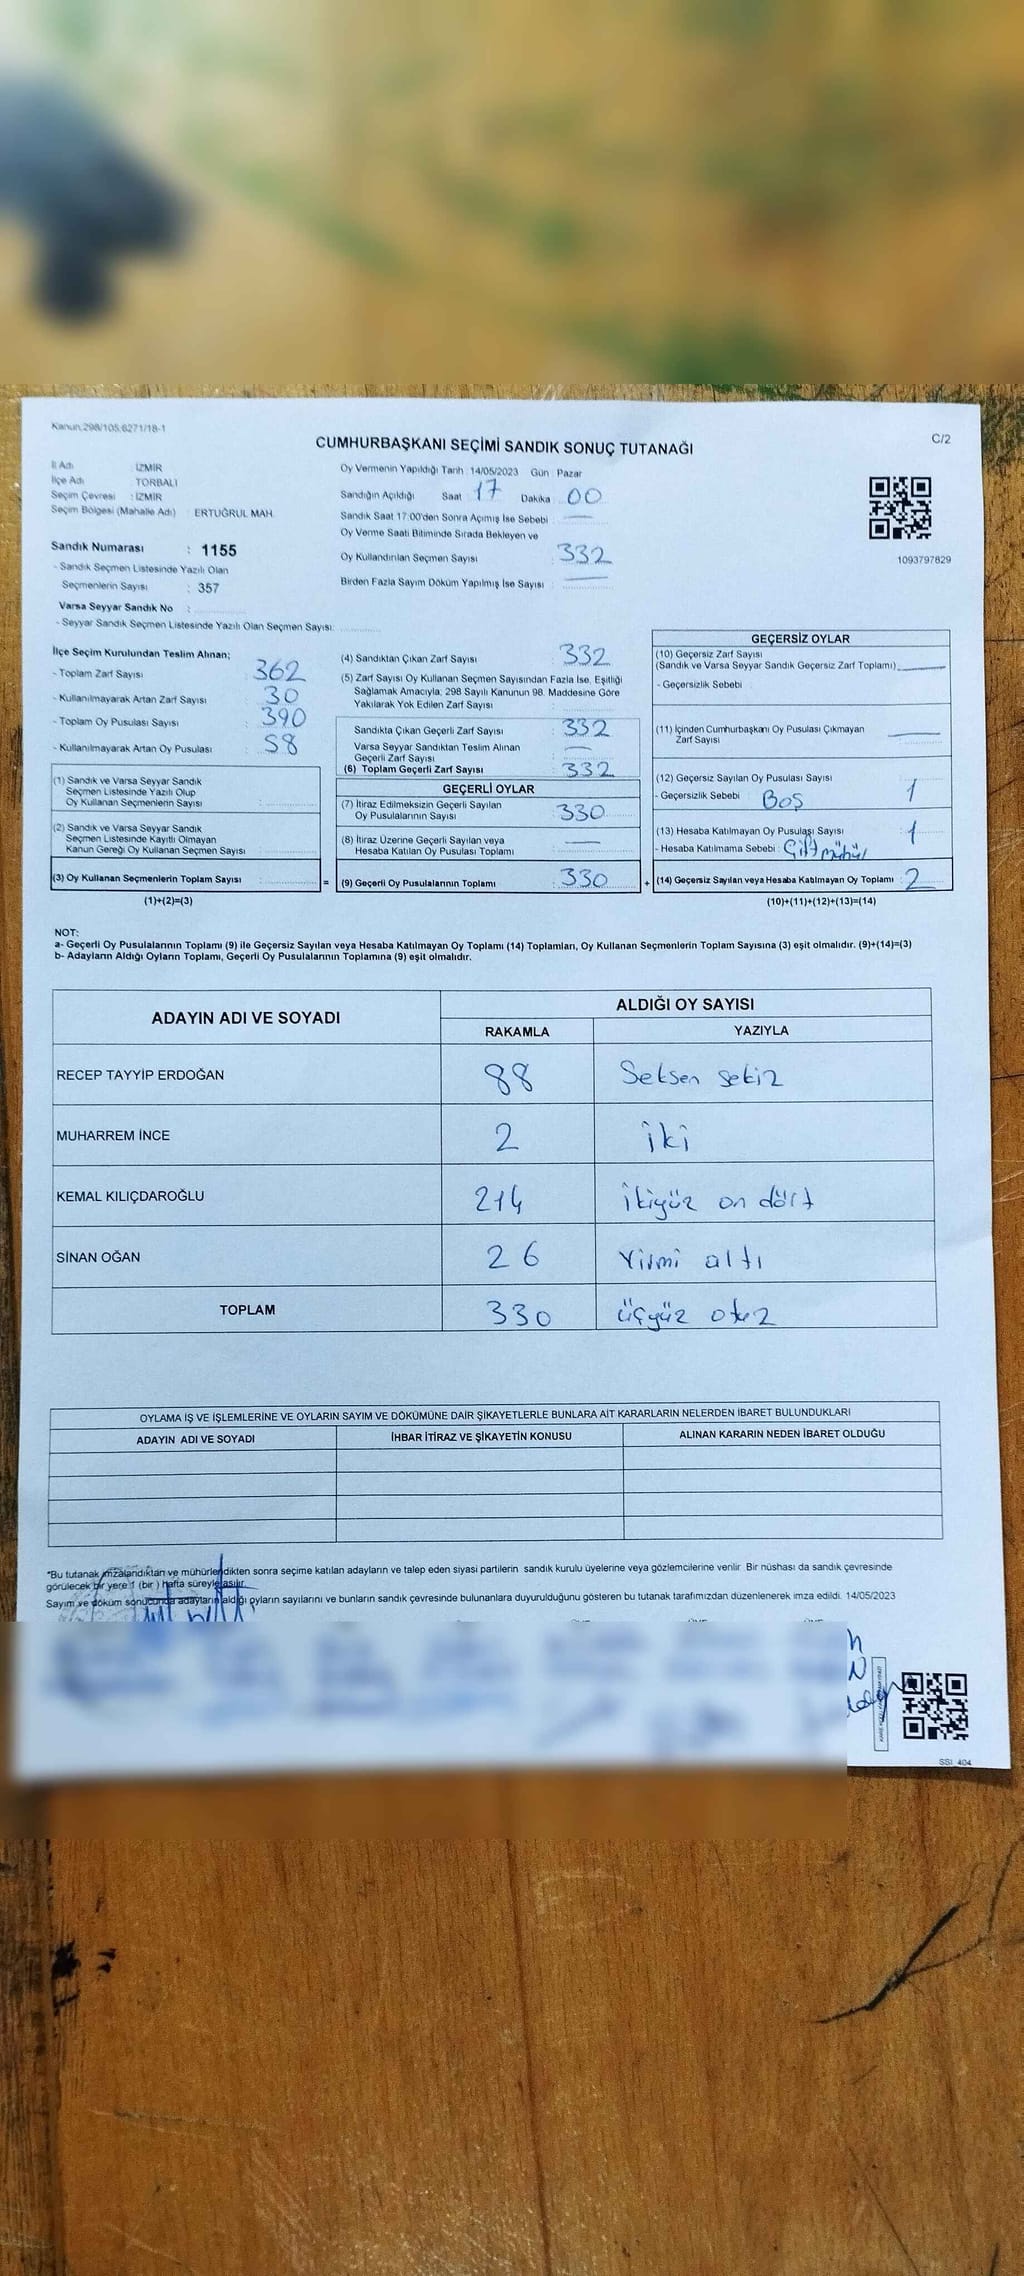 Kanun:298/105,6271/18-1
C/2
CUMHURBAŞKANI SEÇİMİ SANDIK SONUÇ TUTANAĞI
İl Adı : İZMİR
İlçe Adı : TORBALI
Seçim Çevresi : İZMİR
Seçim Bölgesi (Mahalle Adı) : ERTUĞRUL MAH.
Sandık Numarası : 1155
- Sandık Seçmen Listesinde Yazılı Olan
Seçmenlerin Sayısı : 357
Varsa Seyyar Sandık No :
- Seyyar Sandık Seçmen Listesinde Yazılı Olan Seçmen Sayısı:
Oy Vermenin Yapıldığı Tarih 14/05/2023 Gün Pazar
Sandığın Açıldığı Saat 17 Dakika 00
Sandık Saat 17:00'den Sonra Açılmış İse Sebebi
Oy Verme Saati Bitiminde Sırada Bekleyen ve
Oy Kullandırılan Seçmen Sayısı : 332
Birden Fazla Sayım Döküm Yapılmış İse Sayısı
1093797829
İlçe Seçim Kurulundan Teslim Alınan;
- Toplam Zarf Sayısı : 362
- Kullanılmayarak Artan Zarf Sayısı : 30
- Toplam Oy Pusulası Sayısı : 390
- Kullanılmayarak Artan Oy Pusulası : 58
(1) Sandık ve Varsa Seyyar Sandık
Seçmen Listesinde Yazılı Olup
Oy Kullanan Seçmenlerin Sayısı
(2) Sandık ve Varsa Seyyar Sandık
Seçmen Listesinde Kayıtlı Olmayan
Kanun Gereği Oy Kullanan Seçmen Sayısı
(3) Oy Kullanan Seçmenlerin Toplam Sayısı
(1)+(2)=(3)
(4) Sandıktan Çıkan Zarf Sayısı : 332
(5) Zarf Sayısı Oy Kullanan Seçmen Sayısından Fazla İse, Eşitliği
Sağlamak Amacıyla, 298 Sayılı Kanunun 98. Maddesine Göre
Yakılarak Yok Edilen Zarf Sayısı
Sandıkta Çıkan Geçerli Zarf Sayısı : 332
Varsa Seyyar Sandıktan Teslim Alınan
Geçerli Zarf Sayısı
(6) Toplam Geçerli Zarf Sayısı : 332
GEÇERLİ OYLAR
(7) İtiraz Edilmeksizin Geçerli Sayılan
Oy Pusulalarının Sayısı : 330
(8) İtiraz Üzerine Geçerli Sayılan veya
Hesaba Katılan Oy Pusulası Toplamı
= (9) Geçerli Oy Pusulalarının Toplamı : 330 +
GEÇERSİZ OYLAR
(10) Geçersiz Zarf Sayısı
(Sandık ve Varsa Seyyar Sandık Geçersiz Zarf Toplamı)
- Geçersizlik Sebebi
(11) İçinden Cumhurbaşkanı Oy Pusulası Çıkmayan
Zarf Sayısı
(12) Geçersiz Sayılan Oy Pusulası Sayısı 1
- Geçersizlik Sebebi : Boş
(13) Hesaba Katılmayan Oy Pusulası Sayısı 1
- Hesaba Katılmama Sebebi : Çift mühür
(14) Geçersiz Sayılan veya Hesaba Katılmayan Oy Toplamı : 2
(10)+(11)+(12)+(13)=(14)
NOT:
a- Geçerli Oy Pusulalarının Toplamı (9) ile Geçersiz Sayılan veya Hesaba Katılmayan Oy Toplamı (14) Toplamları, Oy Kullanan Seçmenlerin Toplam Sayısına (3) eşit olmalıdır. (9)+(14)=(3)
b- Adayların Aldığı Oyların Toplamı, Geçerli Oy Pusulalarının Toplamına (9) eşit olmalıdır.
ADAYIN ADI VE SOYADI
ALDIĞI OY SAYISI
RAKAMLA YAZIYLA
RECEP TAYYİP ERDOĞAN 88 Seksen sekiz
MUHARREM İNCE 2 iki
KEMAL KILIÇDAROĞLU 214 ikiyüz on dört
SİNAN OĞAN 26 Yirmi altı
TOPLAM 330 üçyüz otuz
OYLAMA İŞ VE İŞLEMLERİNE VE OYLARIN SAYIM VE DÖKÜMÜNE DAİR ŞİKAYETLERLE BUNLARA AİT KARARLARIN NELERDEN İBARET BULUNDUKLARI
ADAYIN ADI VE SOYADI İHBAR İTİRAZ VE ŞİKAYETİN KONUSU ALINAN KARARIN NEDEN İBARET OLDUĞU
*Bu tutanak imzalandıktan ve mühürlendikten sonra seçime katılan adayların ve talep eden siyasi partilerin sandık kurulu üyelerine veya gözlemcilerine verilir. Bir nüshası da sandık çevresinde
görülecek bir yere 1 (bir) hafta süreyle asılır.
Sayım ve döküm sonucunda adayların aldığı oyların sayılarını ve bunların sandık çevresinde bulunanlara duyurulduğunu gösteren bu tutanak tarafımızdan düzenlenerek imza edildi. 14/05/2023
SSİ_404